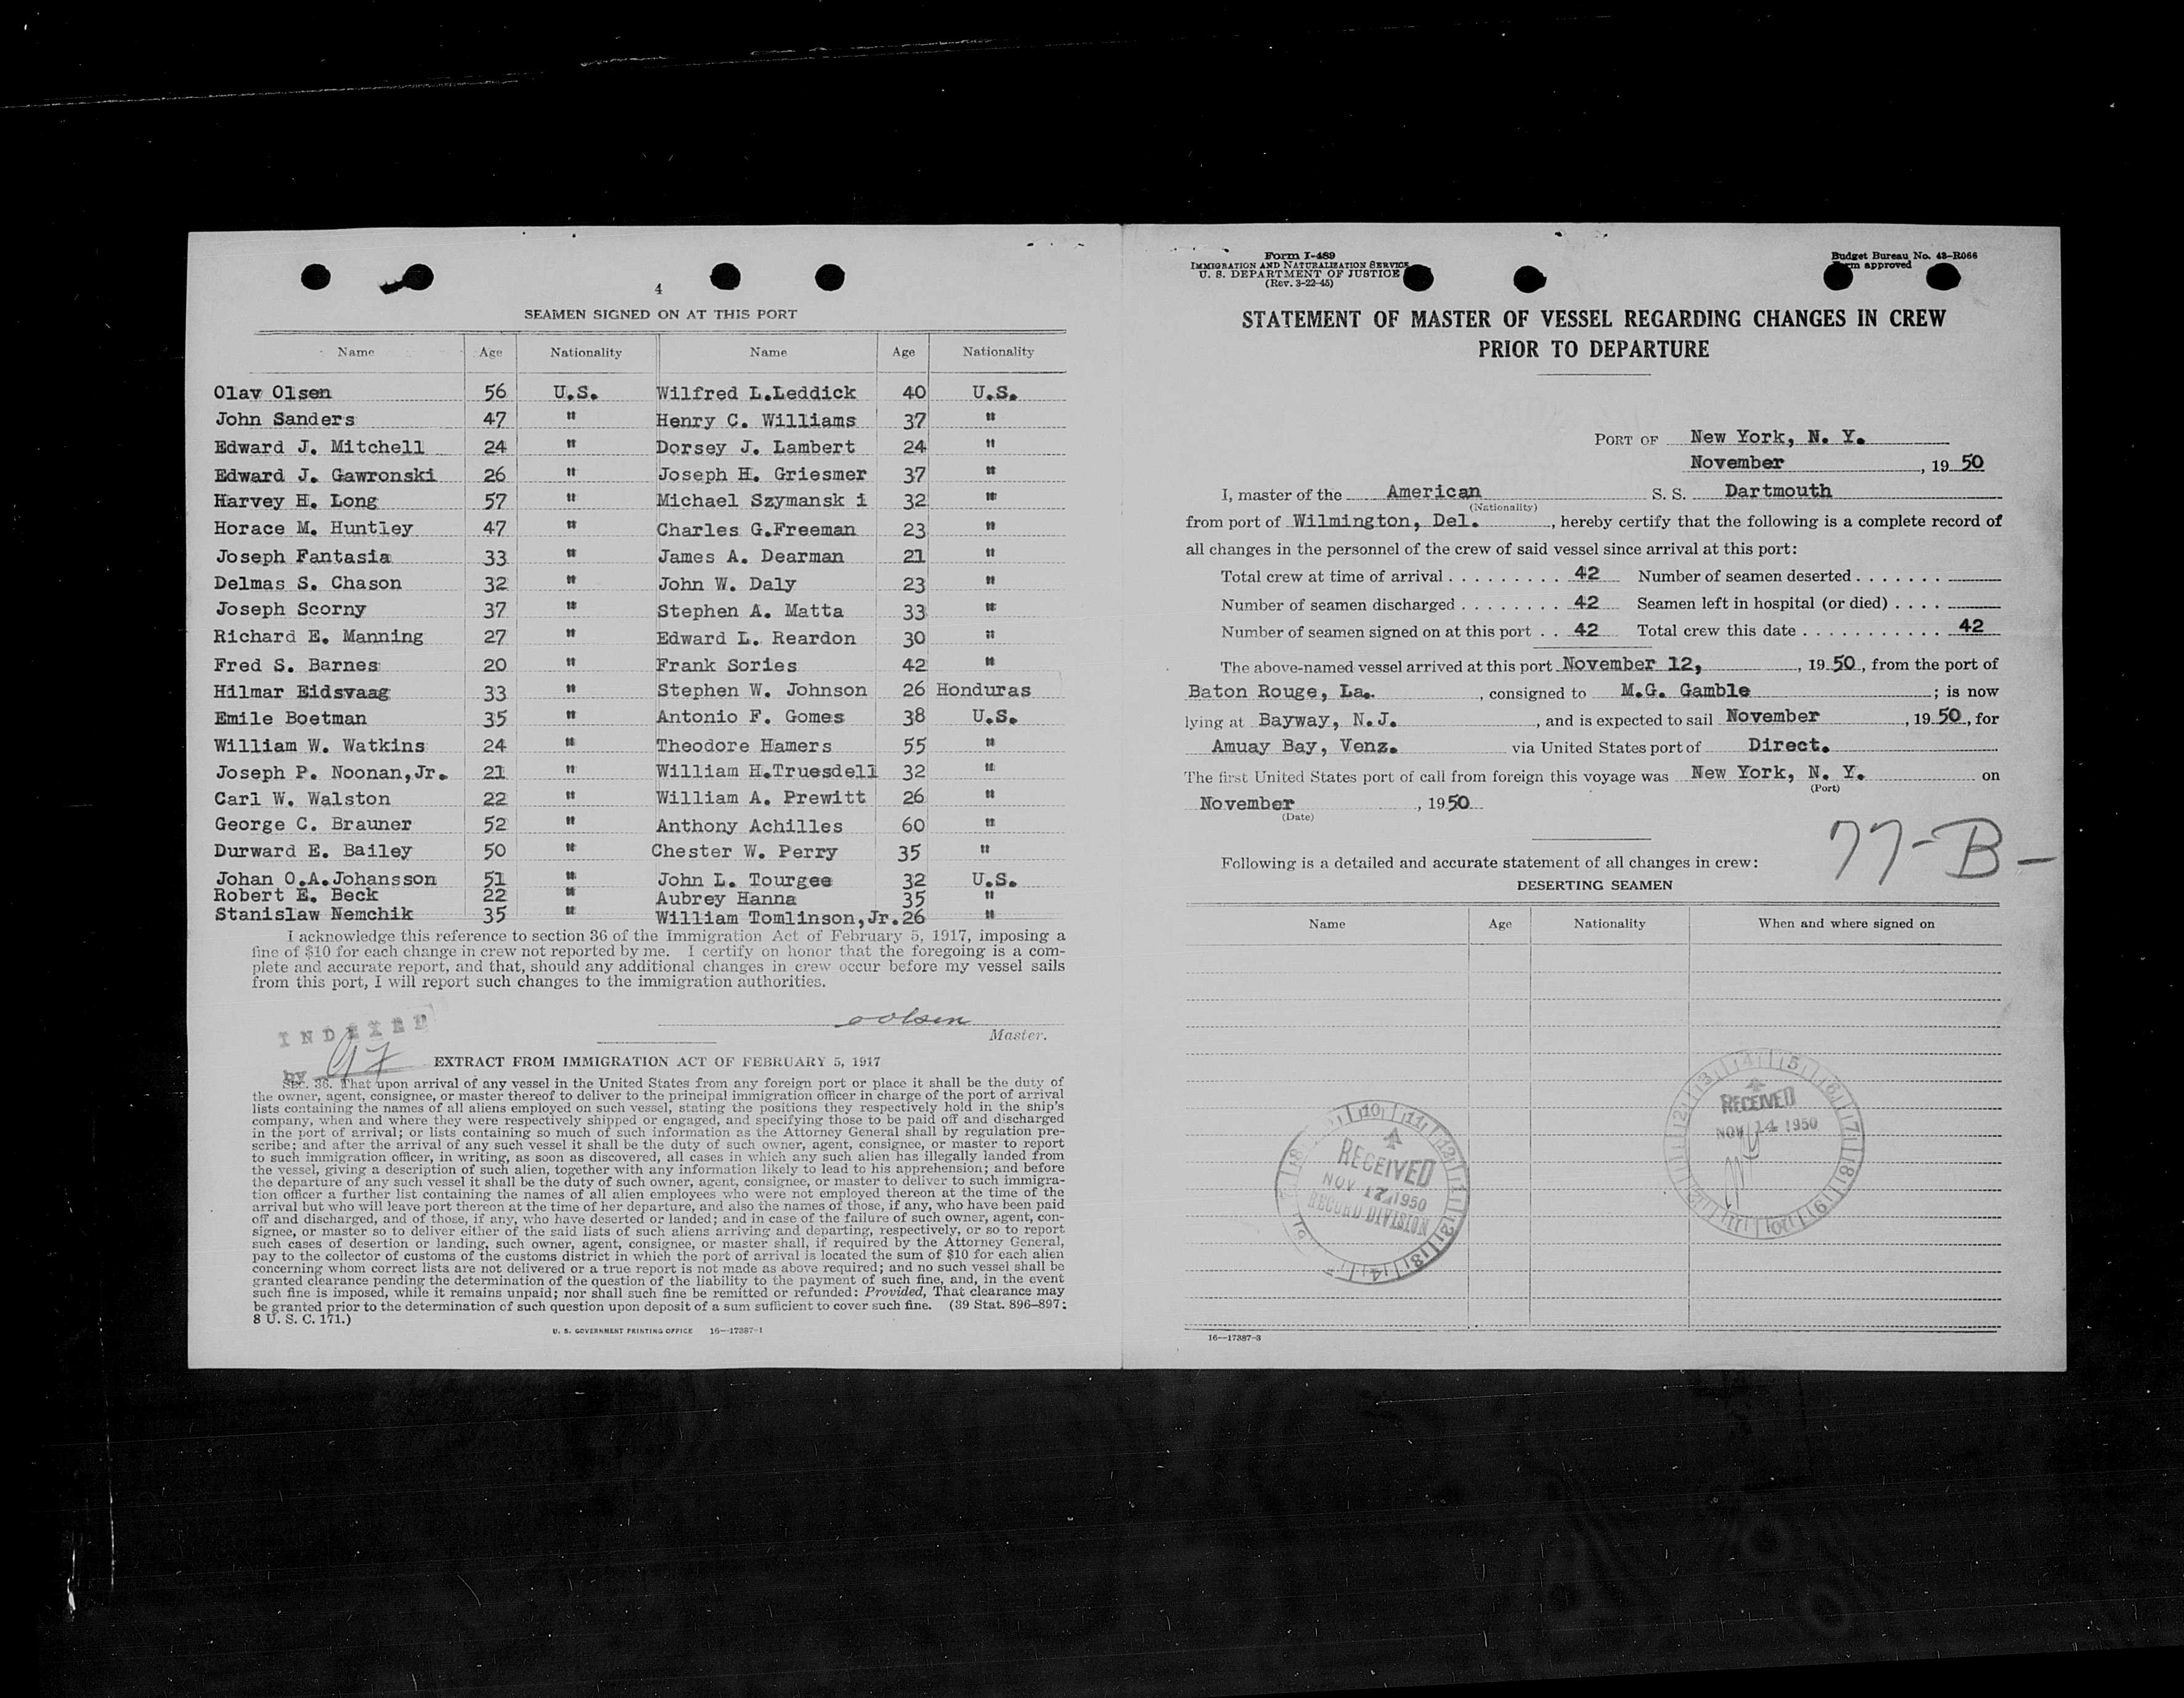 4
SEAMEN SIGNED ON AT THIS PORT
Name Age Nationality Name Age Nationality
Olav Olsen 56 U.S. Wilfred L.Leddick 40 U.S.
John Sanders 47 " Henry C. Williams 37 "
Edward J. Mitchell 24 " Dorsey J. Lambert 24 "
Edward J. Gawronski 26 " Joseph H. Griesmer 37 "
Harvey H. Long 57 " Michael Szymansk i 32 "
Horace M. Huntley 47 " Charles G.Freeman 23 "
Joseph Fantasia 33 " James A. Dearman 21 "
Delmas S. Chason 32 " John W. Daly 23 "
Joseph Scorny 37 " Stephen A. Matta 33 "
Richard E. Manning 27 " Edward L. Reardon 30 "
Fred S. Barnes 20 " Frank Sories 42 "
Hilmar Eidsvaag 33 " Stephen W. Johnson 26 Honduras
Emile Boetman 35 " Antonio F. Gomes 38 U.S.
William W. Watkins 24 " Theodore Hamers 55 "
Joseph P. Noonan,Jr. 21 " William H.Truesdell 32 "
Carl W. Walston 22 " William A. Prewitt 26 "
George C. Brauner 52 " Anthony Achilles 60 "
Durward E. Bailey 50 " Chester W. Perry 35 "
Johan O.A.Johansson 51 " John L. Tourgee 32 U.S.
Robert E. Beck 22 " Aubrey Hanna 35 "
Stanislaw Nemchik 35 " William Tomlinson,Jr. 26 "
I acknowledge this reference to section 36 of the Immigration Act of February 5, 1917, imposing a
fine of $10 for each change in crew not reported by me. I certify on honor that the foregoing is a com-
plete and accurate report, and that, should any additional changes in crew occur before my vessel sails
from this port, I will report such changes to the immigration authorities.
O Olsen
Master.
INDEXED
by
EXTRACT FROM IMMIGRATION ACT OF FEBRUARY 5, 1917
SEC. 36. That upon arrival of any vessel in the United States from any foreign port or place it shall be the duty of
the owner, agent, consignee, or master thereof to deliver to the principal immigration officer in charge of the port of arrival
lists containing the names of all aliens employed on such vessel, stating the positions they respectively hold in the ship's
company, when and where they were respectively shipped or engaged, and specifying those to be paid off and discharged
in the port of arrival; or lists containing so much of such information as the Attorney General shall by regulation pre-
scribe; and after the arrival of any such vessel it shall be the duty of such owner, agent, consignee, or master to report
to such immigration officer, in writing, as soon as discovered, all cases in which any such alien has illegally landed from
the vessel, giving a description of such alien, together with any information likely to lead to his apprehension; and before
the departure of any such vessel it shall be the duty of such owner, agent, consignee, or master to deliver to such immigra-
tion officer a further list containing the names of all alien employees who were not employed thereon at the time of the
arrival but who will leave port thereon at the time of her departure, and also the names of those, if any, who have been paid
off and discharged, and of those, if any, who have deserted or landed; and in case of the failure of such owner, agent, con-
signee, or master so to deliver either of the said lists of such aliens arriving and departing, respectively, or so to report
such cases of desertion or landing, such owner, agent, consignee, or master shall, if required by the Attorney General,
pay to the collector of customs of the customs district in which the port of arrival is located the sum of $10 for each alien
concerning whom correct lists are not delivered or a true report is not made as above required; and no such vessel shall be
granted clearance pending the determination of the question of the liability to the payment of such fine, and, in the event
such fine is imposed, while it remains unpaid; nor shall such fine be remitted or refunded: Provided, That clearance may
be granted prior to the determination of such question upon deposit of a sum sufficient to cover such fine. (39 Stat. 896–897;
8 U. S. C. 171.)
U. S. GOVERNMENT PRINTING OFFICE 16—17387-1
Form I-489
IMMIGRATION AND NATURALIZATION SERVICE
U. S. DEPARTMENT OF JUSTICE
(Rev. 3-22-45)
Budget Bureau No. 43-R066
Form approved
STATEMENT OF MASTER OF VESSEL REGARDING CHANGES IN CREW
PRIOR TO DEPARTURE
PORT OF New York, N. Y.
November , 19 50
I, master of the American S. S. Dartmouth
(Nationality)
from port of Wilmington, Del. , hereby certify that the following is a complete record of
all changes in the personnel of the crew of said vessel since arrival at this port:
Total crew at time of arrival . . . . . . . . . 42 Number of seamen deserted . . . . . . .
Number of seamen discharged . . . . . . . . 42 Seamen left in hospital (or died) . . . .
Number of seamen signed on at this port . . 42 Total crew this date . . . . . . . . . . . 42
The above-named vessel arrived at this port November 12, , 19 50 , from the port of
Baton Rouge, La. , consigned to M.G. Gamble ; is now
lying at Bayway, N.J. , and is expected to sail November , 19 50 , for
Amuay Bay, Venz. via United States port of Direct.
The first United States port of call from foreign this voyage was New York, N. Y. on
(Port)
November , 19 50
(Date)
77-B-
Following is a detailed and accurate statement of all changes in crew:
DESERTING SEAMEN
Name Age Nationality When and where signed on
RECEIVED
NOV 14 1950
RECEIVED
NOV 17 1950
RECORD DIVISION
16—17387-3